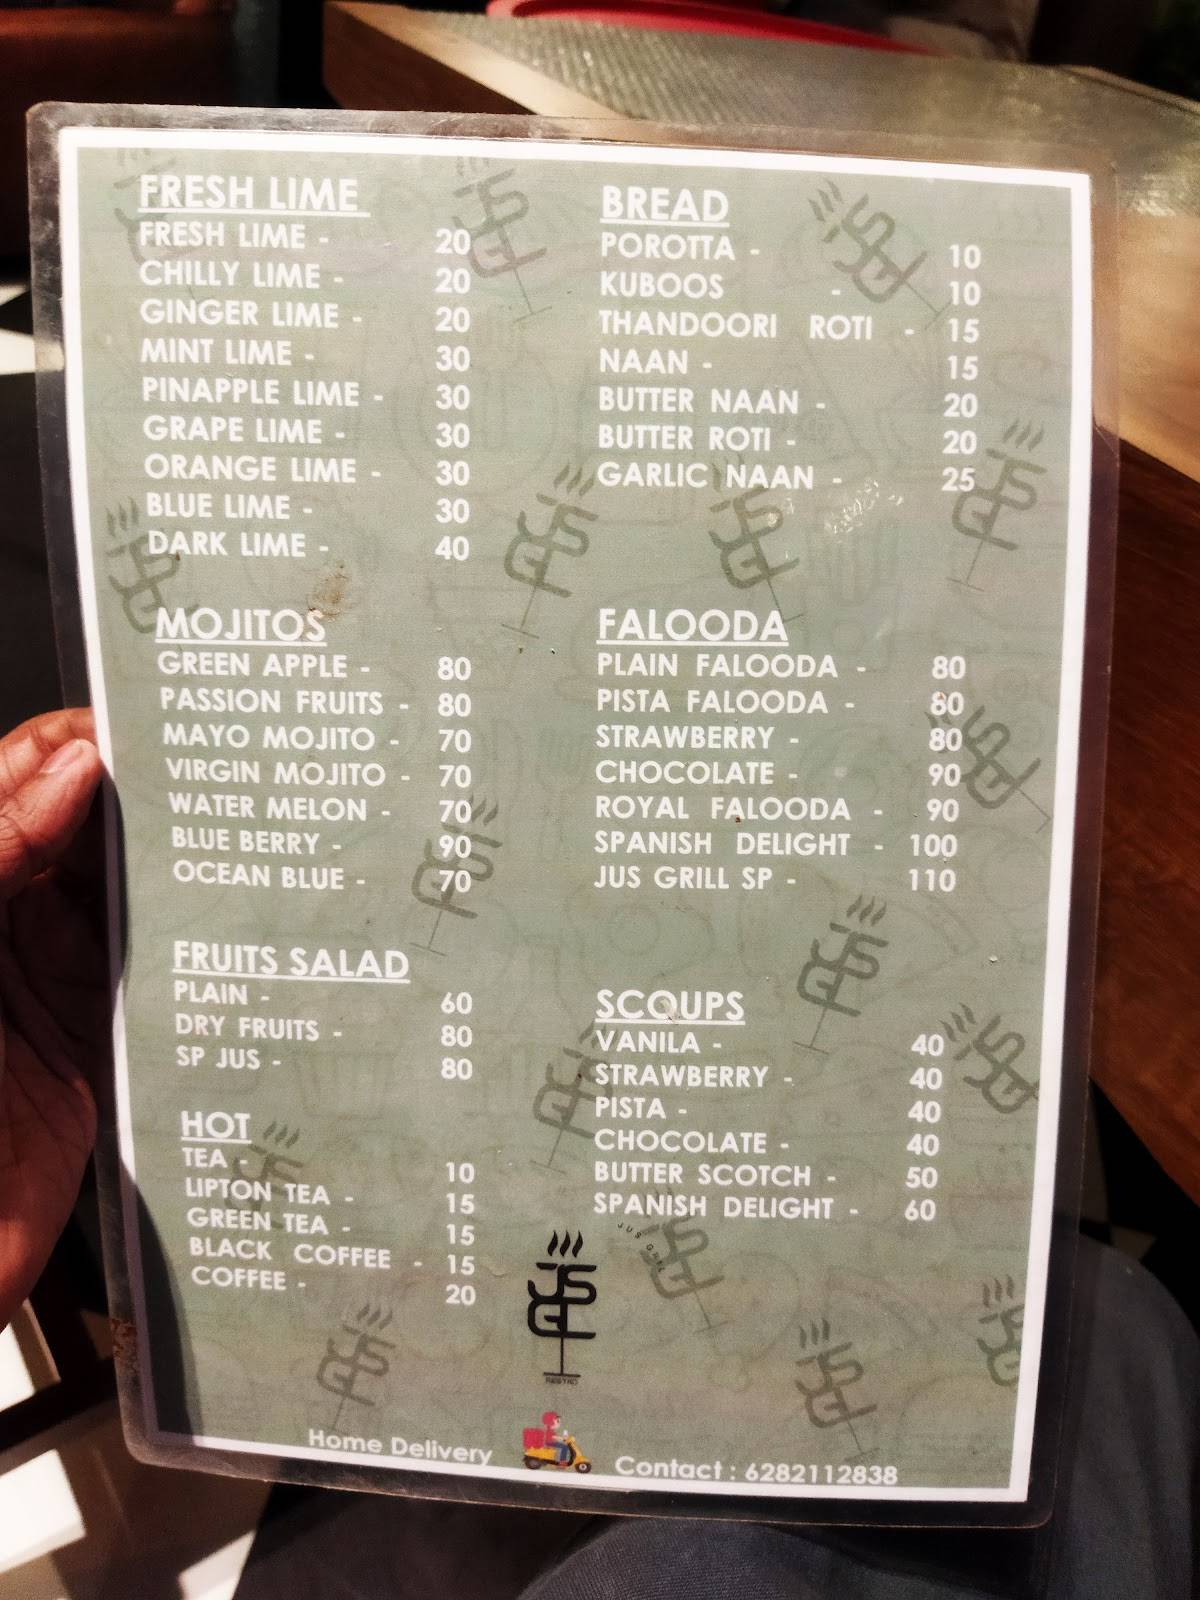 FRESH LIME
FRESH LIME - 20
CHILLY LIME - 20
GINGER LIME - 20
MINT LIME - 30
PINAPPLE LIME - 30
GRAPE LIME - 30
ORANGE LIME - 30
BLUE LIME - 30
DARK LIME - 40
MOJITOS
GREEN APPLE - 80
PASSION FRUITS - 80
MAYO MOJITO - 70
VIRGIN MOJITO - 70
WATER MELON - 70
BLUE BERRY - 90
OCEAN BLUE - 70
FRUITS SALAD
PLAIN - 60
DRY FRUITS - 80
SP JUS - 80
HOT
TEA - 10
LIPTON TEA - 15
GREEN TEA - 15
BLACK COFFEE - 15
COFFEE - 20
BREAD
POROTTA - 10
KUBOOS - 10
THANDOORI ROTI - 15
NAAN - 15
BUTTER NAAN - 20
BUTTER ROTI - 20
GARLIC NAAN - 25
FALOODA
PLAIN FALOODA - 80
PISTA FALOODA - 80
STRAWBERRY - 80
CHOCOLATE - 90
ROYAL FALOODA - 90
SPANISH DELIGHT - 100
JUS GRILL SP - 110
SCOUPS
VANILA - 40
STRAWBERRY - 40
PISTA - 40
CHOCOLATE - 40
BUTTER SCOTCH - 50
SPANISH DELIGHT - 60
JUS GRILL
RESTRO
Home Delivery
Contact : 6282112838